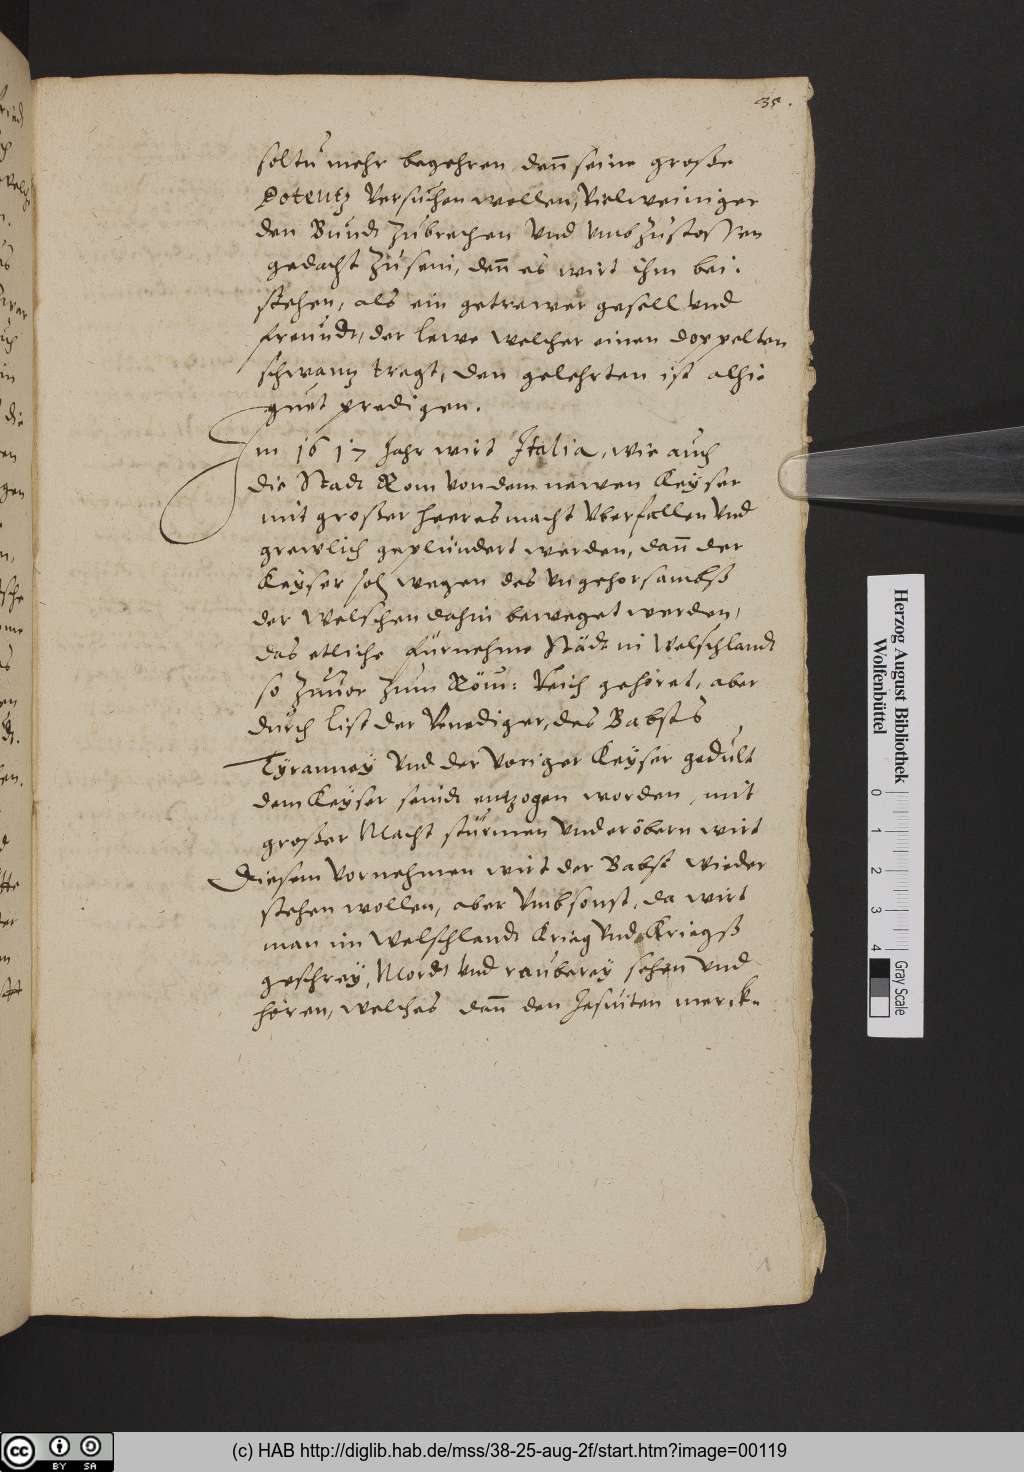 35.
soltu mehr begehren den̄ seine große
Potentz versuchen wollen, Vielweiniger
den Bundt zubrechen vnd vmbzustossen
gedacht zusein, den̄ es wirt ihm bei-
stehen, als ein getrewer gesell vnd
freundt, der lewe welcher einen doppelten
schwantz tregt, den gelehrten ist alhie
gnuet predigen.
Im 1617 Jahr wirt Italia, wie auch
die Stadt Rom von dem newen Keyser
mit großer heeresmacht vberfallen vnd
grewlich geplündert werden, dan̄ der
Keyser soll wegen des vngehorsambß
der Welschen dahin beweget werden,
das etliche fürnehme Städt in Welschlandt
so zuuor zum Röm: Reich gehöret, aber
durch list der Venediger, des Babsts
Tyranney vnd der voriger Keyser gedult
dem Keyser seindt entzogen worden, mit
großer Macht stürmen vnd eröbern wirt
Diesem vornehmen wirt der Babst wieder
stehen wollen, aber vmbsonst, da wirt
man im Welschlandt Krieg vnd Kriegß
geschrey, Mordt vnd rauberey sehen vnd
hören, welches den̄ den Jesuiten merck-
Herzog August Bibliothek
Wolfenbüttel
0 1 2 3 4
Gray Scale
cc BY SA
(c) HAB http://diglib.hab.de/mss/38-25-aug-2f/start.htm?image=00119